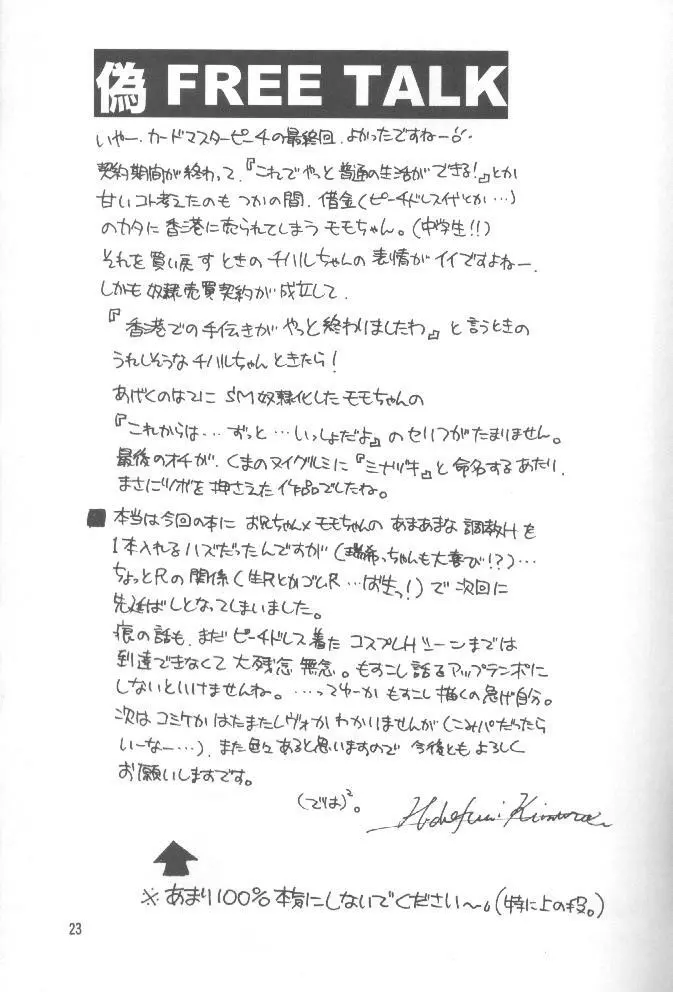 偽 FREE TALK
いやー、カードマスターピーチの最終回、よかったですねー。
契約期間が終わって、『これでやっと普通の生活ができる!』とか
甘いコト考えたのも つかの間、借金(ピーチドレス代とか…)
のカタに香港に売られてしまう モモちゃん。(中学生!!)
それを買い戻すときの チハルちゃんの 表情が イイですよねー。
しかも 奴隷売買契約が 成立して、
『香港での手伝きが やっと終わりましたわ』と言うときの
うれしそうな チハルちゃん ときたら!
あげくのはてに SM奴隷化した モモちゃんの
『これからは…ずっと…いっしょだよ』の セリフがたまりません。
最後のオチが、くまの ヌイグルミに『ミナヅキ』と 命名する あたり、
まさにツボを 押さえた 作品でしたね。
■ 本当は今回の本に お兄ちゃん×モモちゃんの あまあまな 調教Hを
1本入れるハズだったんですが(瑞希っちゃんも大喜び!?)…
ちょっとRの関係(生Rとかゴム R…ば生っ!)で 次回に
先延ばしとなってしまいました。
痕の話も、まだ ピーチドレス着た コスプレHシーンまでは
到達できなくて 大残念 無念。もすこし 話をアップテンポに
しないといけませんね。…ってゆーか もすこし 描くの急げ自分。
次は コミケか はたまたレヴォか わかりませんが(こみパだったら
いーなー…)、また色々あると思いますので 今後とも よろしく
お願いしますです。
(では)²。
※あまり100%本気にしないでください〜。(特に上の段。)
23